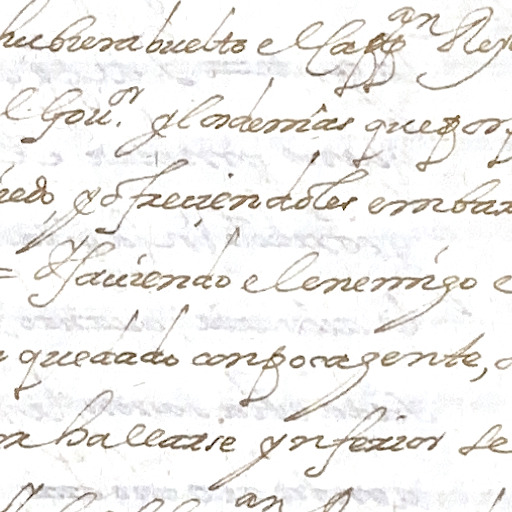 hubiera buelto el Cappan
el Gouor. y los demas que por
y ofreciendoles embar
= y saviendo el enemigo e
quedado con poca gente,
hallarse ynferior de